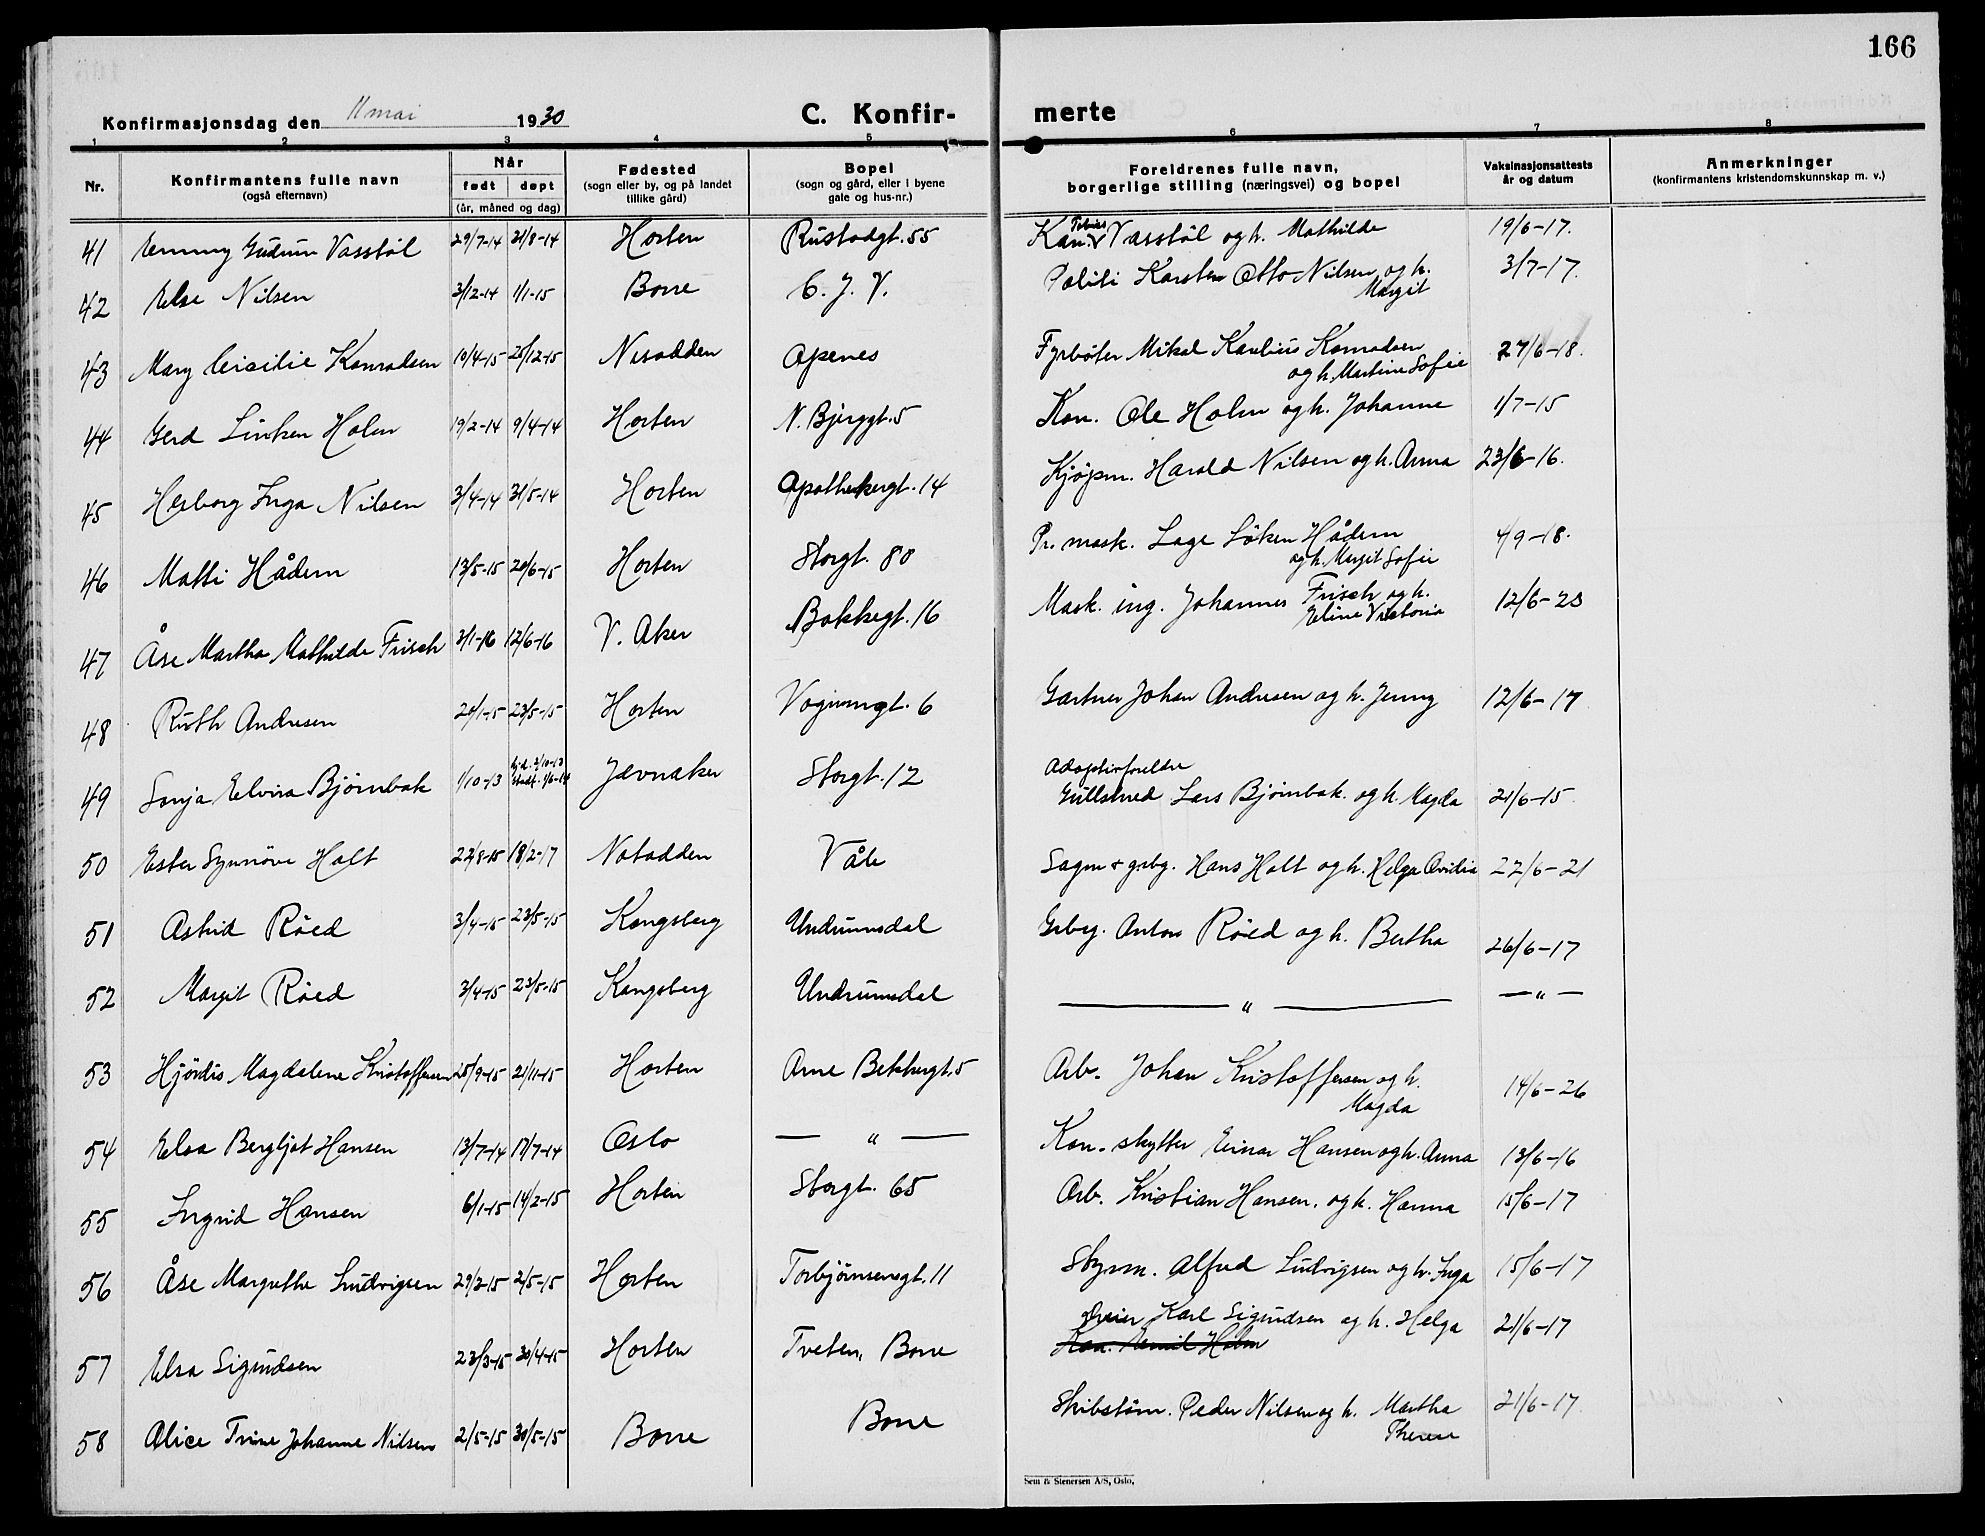 166
Konfirmasjonsdag den 11 mai 1930 C. Konfir- merte
1 2 3 4 5 6 7 8
Nr. Konfirmantens fulle navn (også efternavn) Når født døpt (år, måned og dag) Fødested (sogn eller by, og på landet tillike gård) Bopel (sogn og gård, eller i byene gate og hus-nr.) Foreldrenes fulle navn, borgerlige stilling (næringsvei) og bopel Vaksinasjonsattests år og datum Anmerkninger (konfirmantens kristendomskunnskap m. v.)
41 Emmy Gudrun Vasstöl 29/7-14 21/8-14 Horten Rustadgt. 55 Kan. Vasstöl og h. Mathilde 19/6-17.
42 Else Nilsen 3/12-14 1/1-15 Borre C. J. V. Politi Karsten Otto Nilsen og h. Margit 3/7-17.
43 Mary Cicilie Konradsen 10/4-15 25/12-15 Nesodden Apenes Fyrböter Mikal Karelius Konradsen og h. Martine Sofie 27/6-18.
44 Gerd Linken Holm 19/2-14 9/4-14 Horten N. Bjerggt. 5 Kan. Ole Holm og h. Johanne 1/7-15
45 Herborg Inga Nilsen 3/4-14 31/5-14 Horten Apothekergt. 14 Kjöpm. Harald Nilsen og h. Anna 23/6-16.
46 Matti Hådem 13/5-15 20/6-15 Horten Storgt. 80 Pr. mask. Lage Löken Hådem og h. Margit Sofie 4/9-18.
47 Åse Martha Mathilde Frisch 2/1-16 12/6-16 V. Aker Bakkegt. 16 Mask. ing. Johannes Frisch og h. Eline Victoria 12/6-23
48 Ruth Andresen 24/1-15 23/5-15 Horten Vognmgt. 6 Gartner Johan Andresen og h. Jenny 12/6-17
49 Sonja Elvira Björnbak 1/10-13 Jevnaker Storgt. 12 Adoptivforeldre Gullsmed Lars Björnbak. og h. Magda 21/6-15.
50 Ester Synnöve Holt 22/8-15 18/2-17 Notodden Våle Sagm + grbg. Hans Holt og h. Helga Ovidia 22/6-21
51 Astrid Röed 3/4-15 23/5-15 Kongsberg Undrumsdal Grbrg. Anton Röed og h. Bertha 26/6-17
52 Margit Röed 3/4-15 23/5-15 Kongsberg Undrumsdal — " — — " —
53 Hjördis Magdalene Kristoffersen 25/9-15 21/11-15 Horten Arne Bekkergt. 5 Arb. Johan Kristoffersen og h. Magda 14/6-26
54 Elsa Bergljot Hansen 13/7-14 17/7-14 Oslo — " — Kan. skytter Einar Hansen og h. Anna 13/6-16
55 Ingrid Hansen 6/1-15 14/2-15 Horten Storgt. 65 Arb. Kristian Hansen. og h. Hanna 15/6-17
56 Åse Margrethe Ludvigsen 29/2-15 2/5-15 Horten Torbjörnsensgt. 11 Styrm. Alfred Ludvigsen og h. Inga 15/6-17
57 Elsa Sigurdsen 23/3-15 30/4-15 Horten Tveten, Borre Dreier Karl Sigurdsen og h. Helga 21/6-17
Kan. Emil Holm
58 Alice Trine Johanne Nilsen 2/5-15 30/5-15 Borre Borre Skibstöm. Peder Nilsen og h. Martha Therese 21/6-17.
Sem & Stenersen A/S, Oslo.